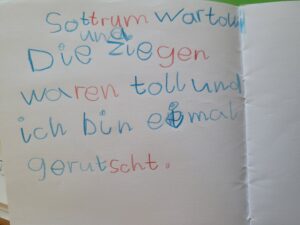 Sottrum war toll
und
Die Ziegen
waren toll und
ich bin eimal
gerutscht.